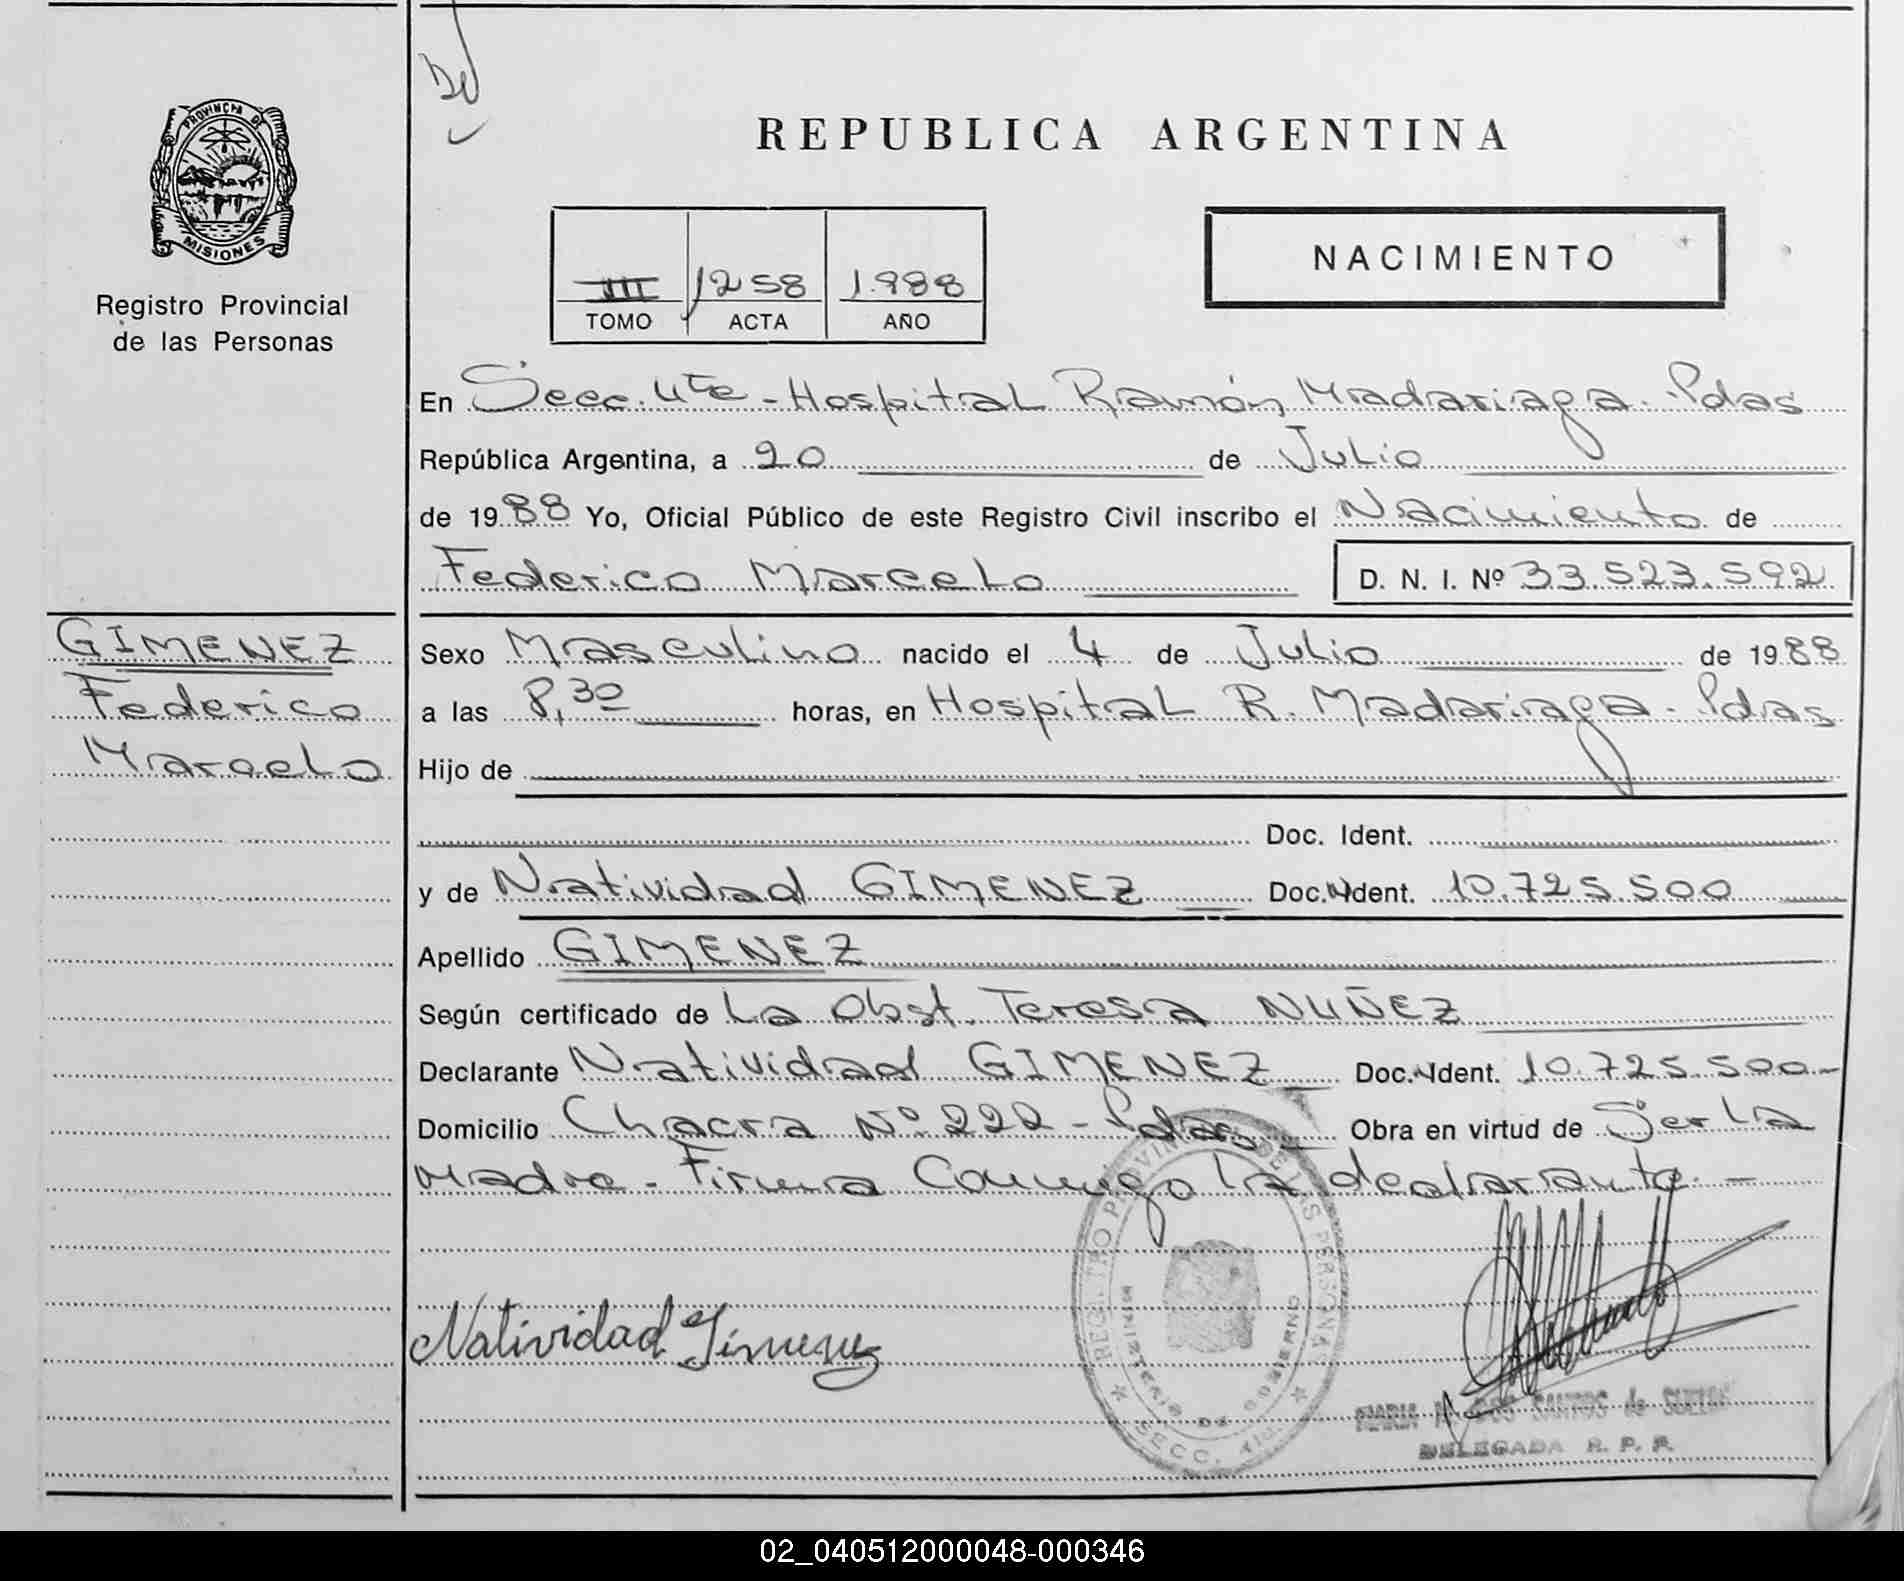 PROVINCIA DE
MISIONES
Registro Provincial
de las Personas
REPUBLICA ARGENTINA
III 1258 1.988
TOMO ACTA AÑO
NACIMIENTO
En Secc. 4ta - Hospital Ramón Madariaga. Pdas
República Argentina, a 20 de Julio
de 1988 Yo, Oficial Público de este Registro Civil inscribo el Nacimiento de
Federico Marcelo D. N. I. Nº 33.523.592
GIMENEZ
Federico
Marcelo
Sexo Masculino nacido el 4 de Julio de 1988
a las 8,30 horas, en Hospital R. Madariaga. Pdas
Hijo de
Doc. Ident.
y de Natividad GIMENEZ Doc. Ident. 10.725.500
Apellido GIMENEZ
Según certificado de La Obst. Teresa NUÑEZ
Declarante Natividad GIMENEZ Doc. Ident. 10.725.500-
Domicilio Chacra Nº 222 - Pdas Obra en virtud de Ser la
madre. Firma Conmigo la declarante. -
Natividad Gimenez
REGISTRO PROVINCIAL DE LAS PERSONAS
MINISTERIO DE GOBIERNO
SECC. 4ta.
MARIA DOS SANTOS de
DELEGADA R. P. P.
02_040512000048-000346